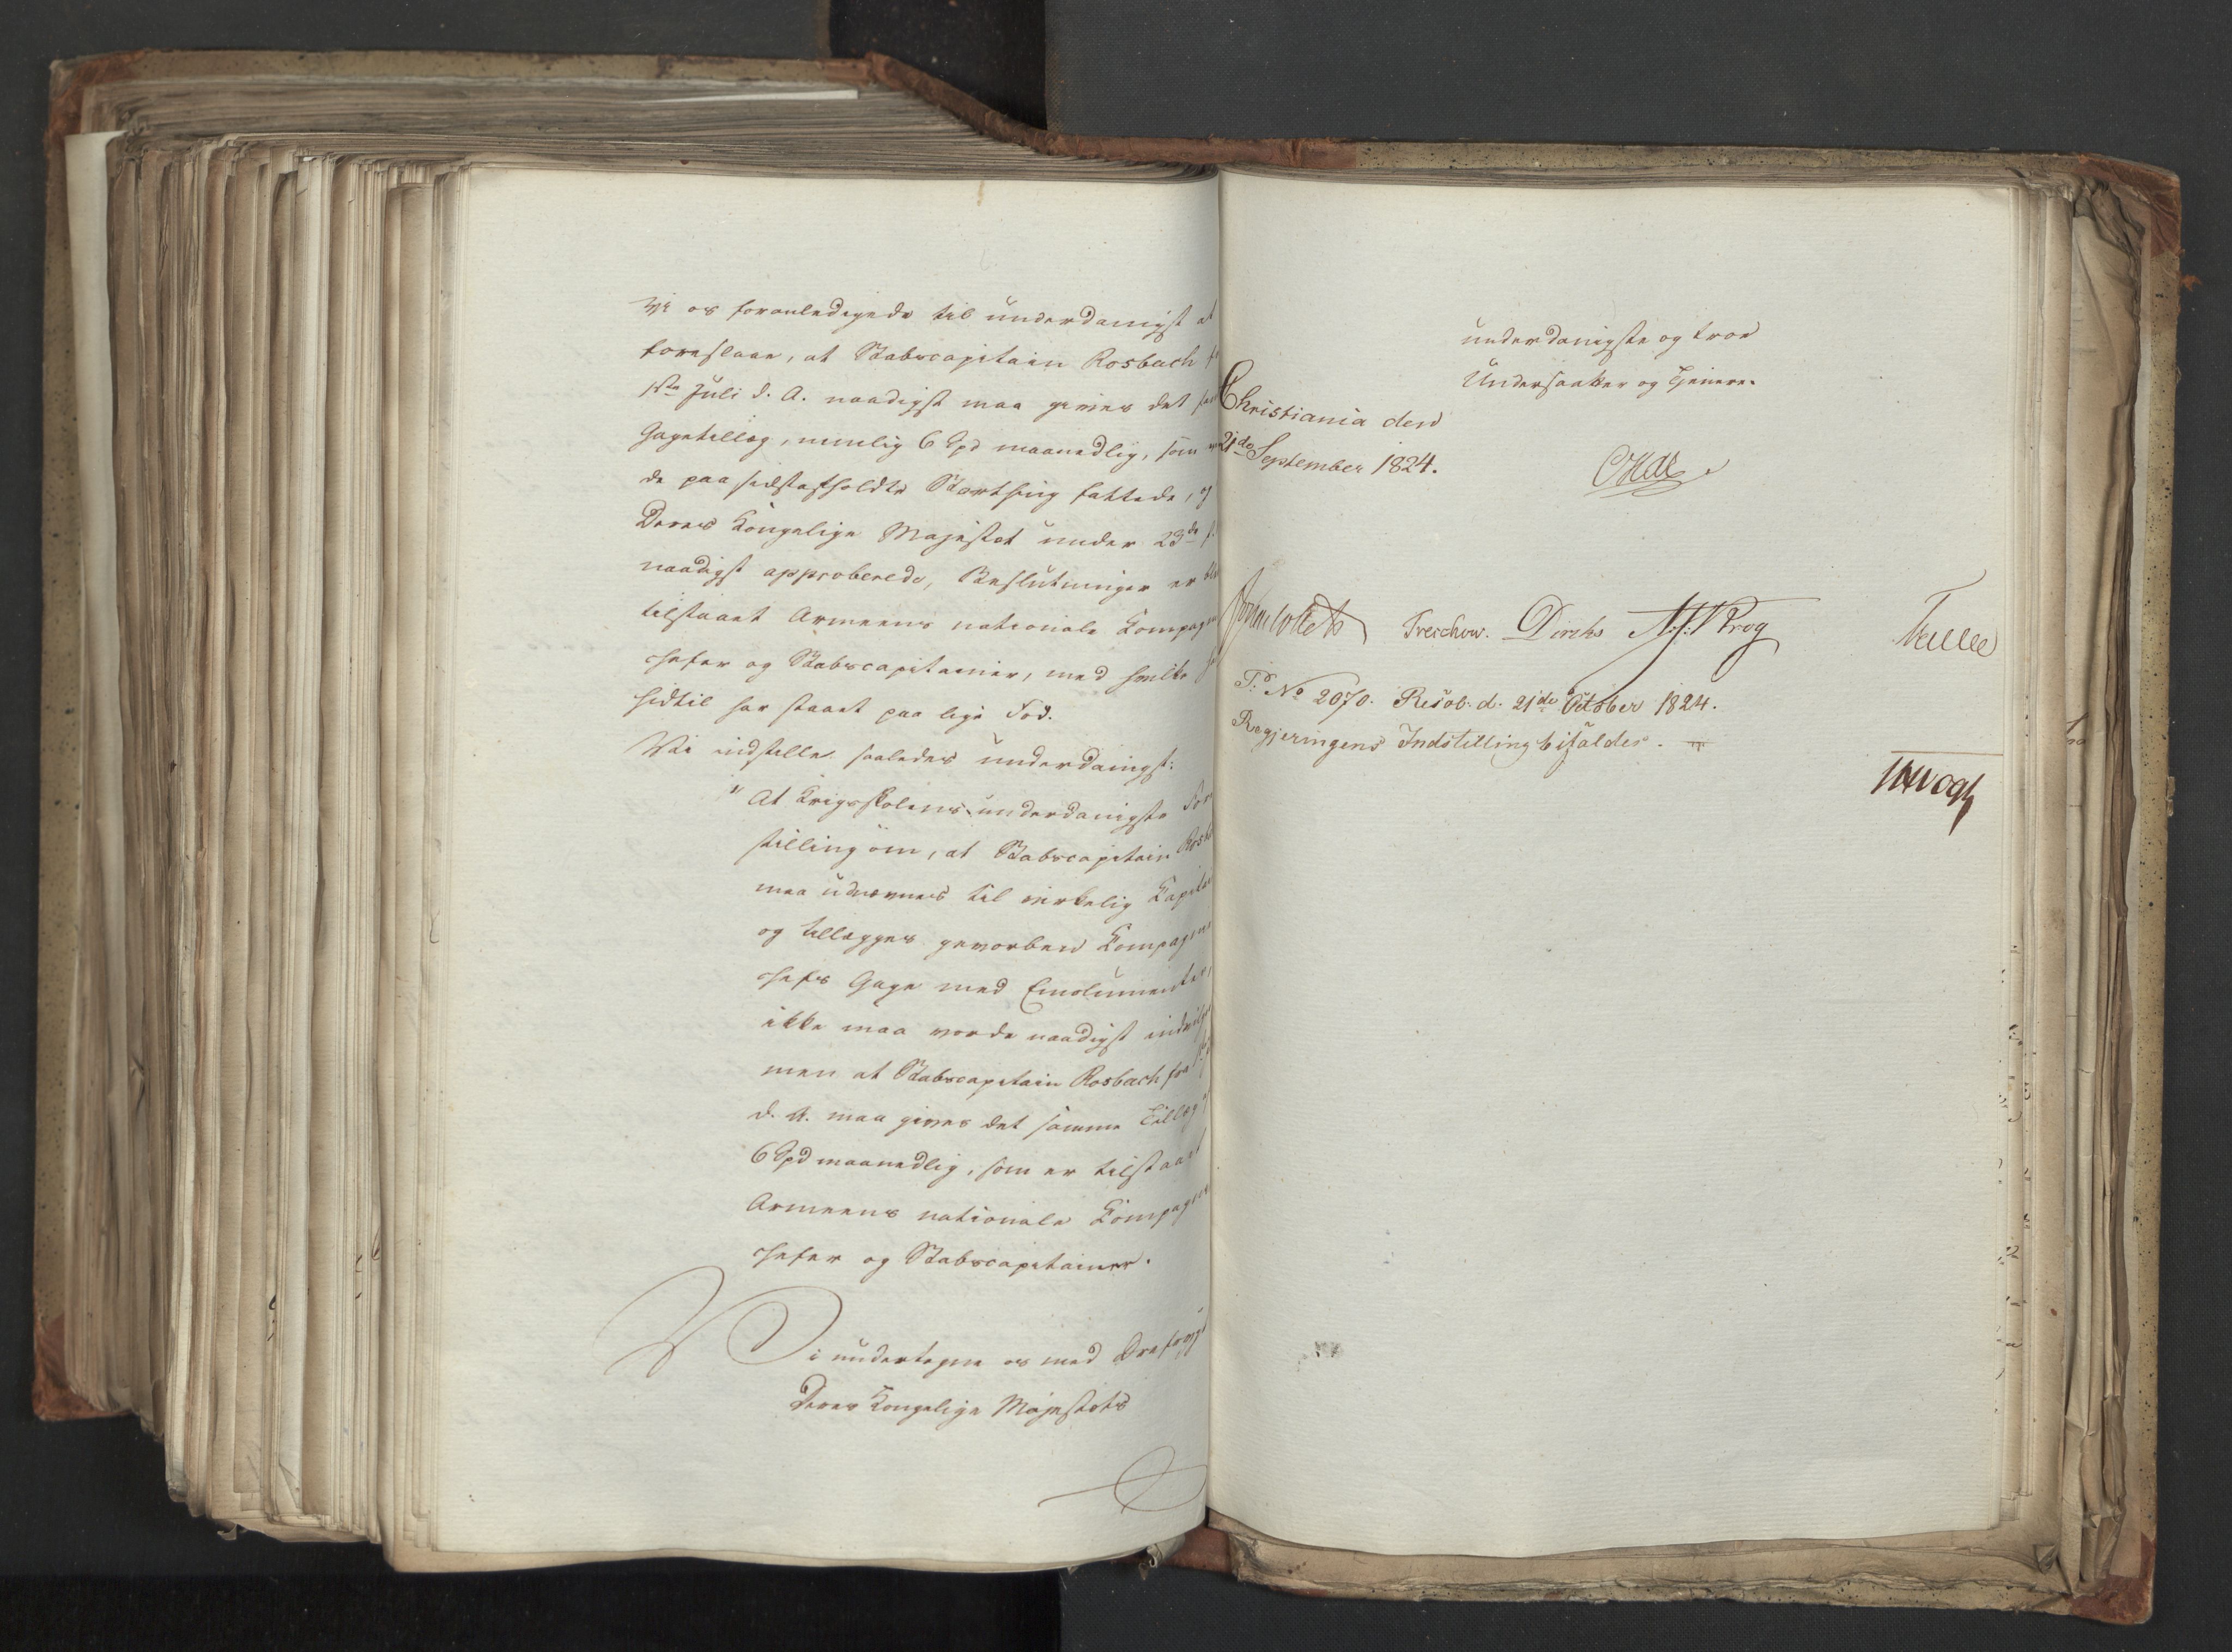 vi os foranledigede til underdanigst at
foreslaae, at Stabscapitain Rosbach
1ste Juli d. A. naadigst maa gives det
Gagetillæg, nemlig 6 Spd maanedlig, som
de paa sidstafholdte Storthing fattede, og
Deres Kongelige Majestet under 23de
naadigst approberede, Beslutninger er
tilstaaet Armeens nationale Compagnie
chefer og Stabscapitainer, med hvilke
hidtil har staaet paa lige Fod.
Vi indstille saaledes underdanigst:
At Krigsskolens underdanigste Fore
stilling om, at Stabscapitain Rosb
maa udnævnes til virkelig Capitai
og tillægges gevorben Compagnie
chefs Gage med Emolumenter,
ikke maa vorde naadigst indvilget
men at Stabscapitain Rosbach fra
d. A. maa gives det samme Tillæg af
6 Spd maanedlig, som er tilstaaet
Armeens nationale Compagnie
chefer og Stabscapitainer.
Vi undertegne os med Dref
Deres Kongelige Majestets
underdanigste og troe
Undersaatter og Tjenere.
Christiania den
21de September 1824.
Jonas Collett Treschow. Diriks Krog
P: No 2070. Resol: d. 21de October 1824.
Regjeringens Indstilling bifaldes.
Vogt